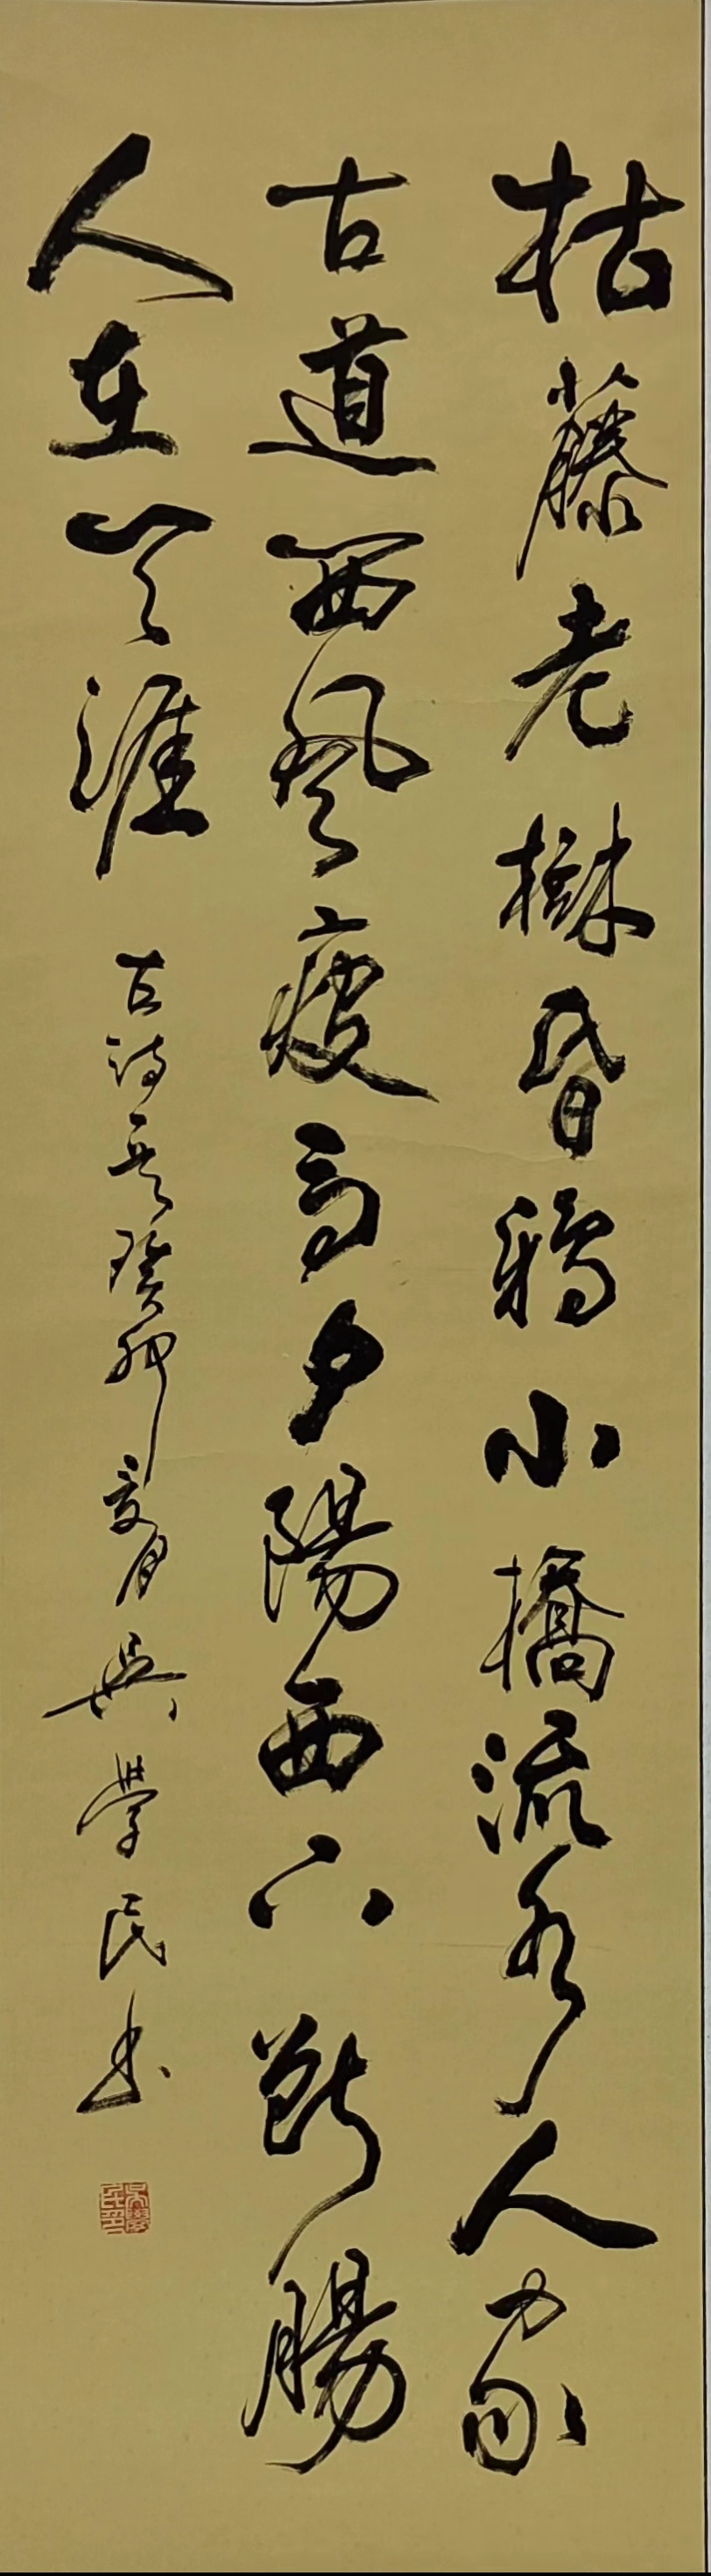 枯藤老樹昏鴉小橋流水人家
古道西風瘦馬夕陽西下斷腸
人在天涯
古詩 癸卯夏月吳學民书
吳學民印